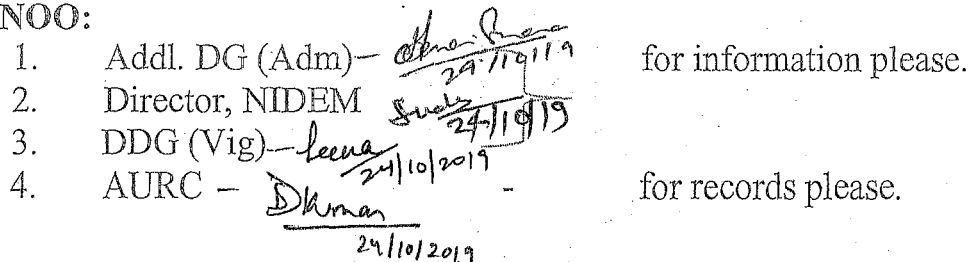 NOO:
1. Addl. DG (Adm)– 24/10/19 for information please.
2. Director, NIDEM 24/10/19
3. DDG (Vig)– Leena 24/10/2019
4. AURC – DKumar - for records please.
24/10/2019